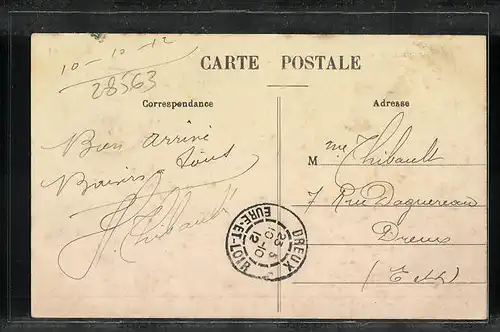 10-10-12
28563
CARTE POSTALE
Correspondance
Adresse
Bien arrivé
Baisers à tous
Thibault
M me Thibault
7 Rue Daguereau
Dreux
(E & L)
DREUX
23 5
10-10
12
EURE-ET-LOIR